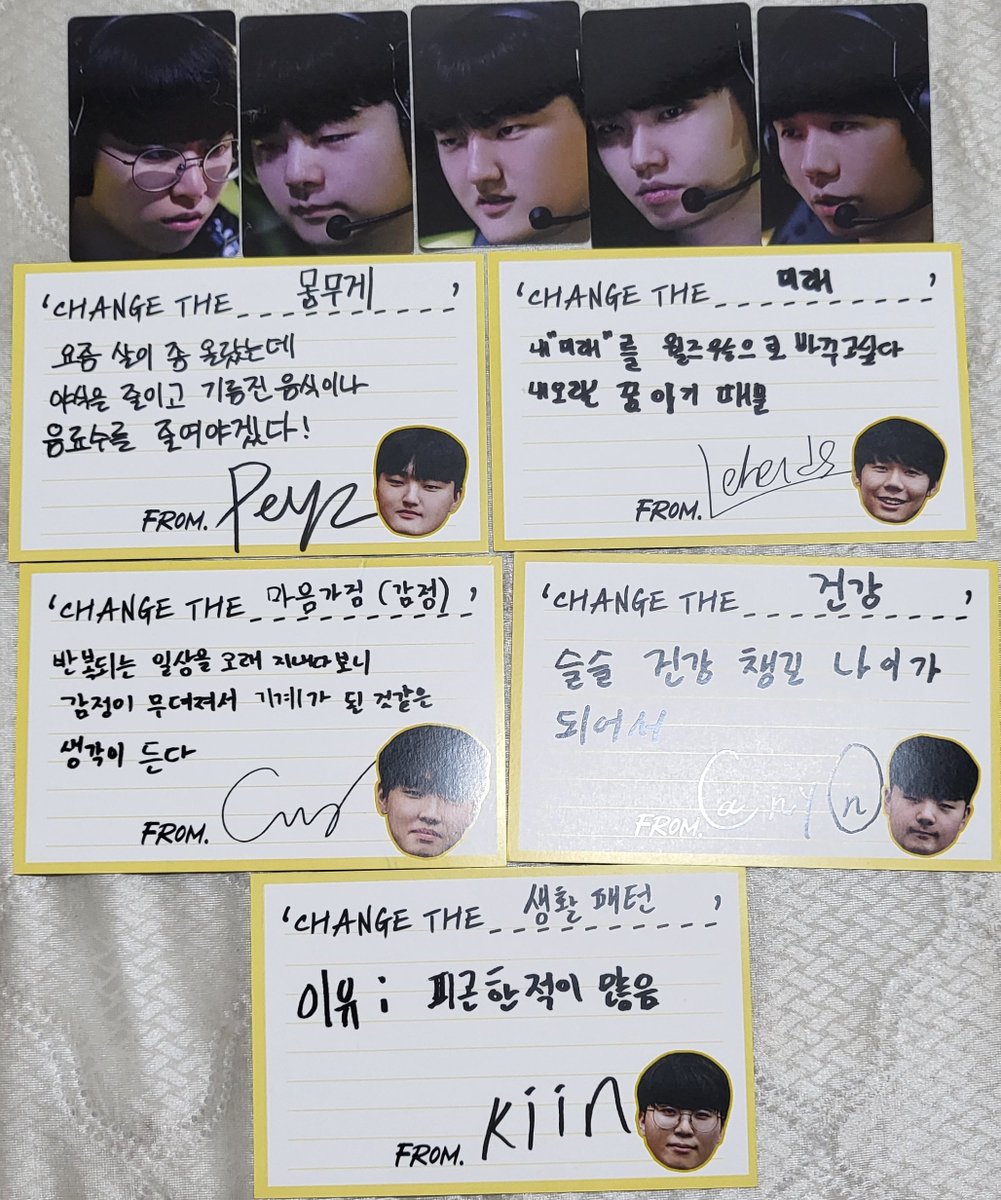 'CHANGE THE 몽무게'
요즘 살이 좀 올랐는데
야식을 줄이고 기름진 음식이나
음료수를 줄여야겠다!
FROM. Peyz
'CHANGE THE 미래'
내"미래"를 월즈우승으로 바꾸고싶다
내오랜 꿈이기 때문
FROM. Lehends
'CHANGE THE 마음가짐 (감정)'
반복되는 일상을 오래 지내다보니
감정이 무뎌져서 기계가 된 것같은
생각이 든다
FROM.
'CHANGE THE 건강'
슬슬 건강 챙길 나이가
되어서
FROM. Canyon
'CHANGE THE 생활패턴'
이유: 피곤한적이 많음
FROM. Kiin